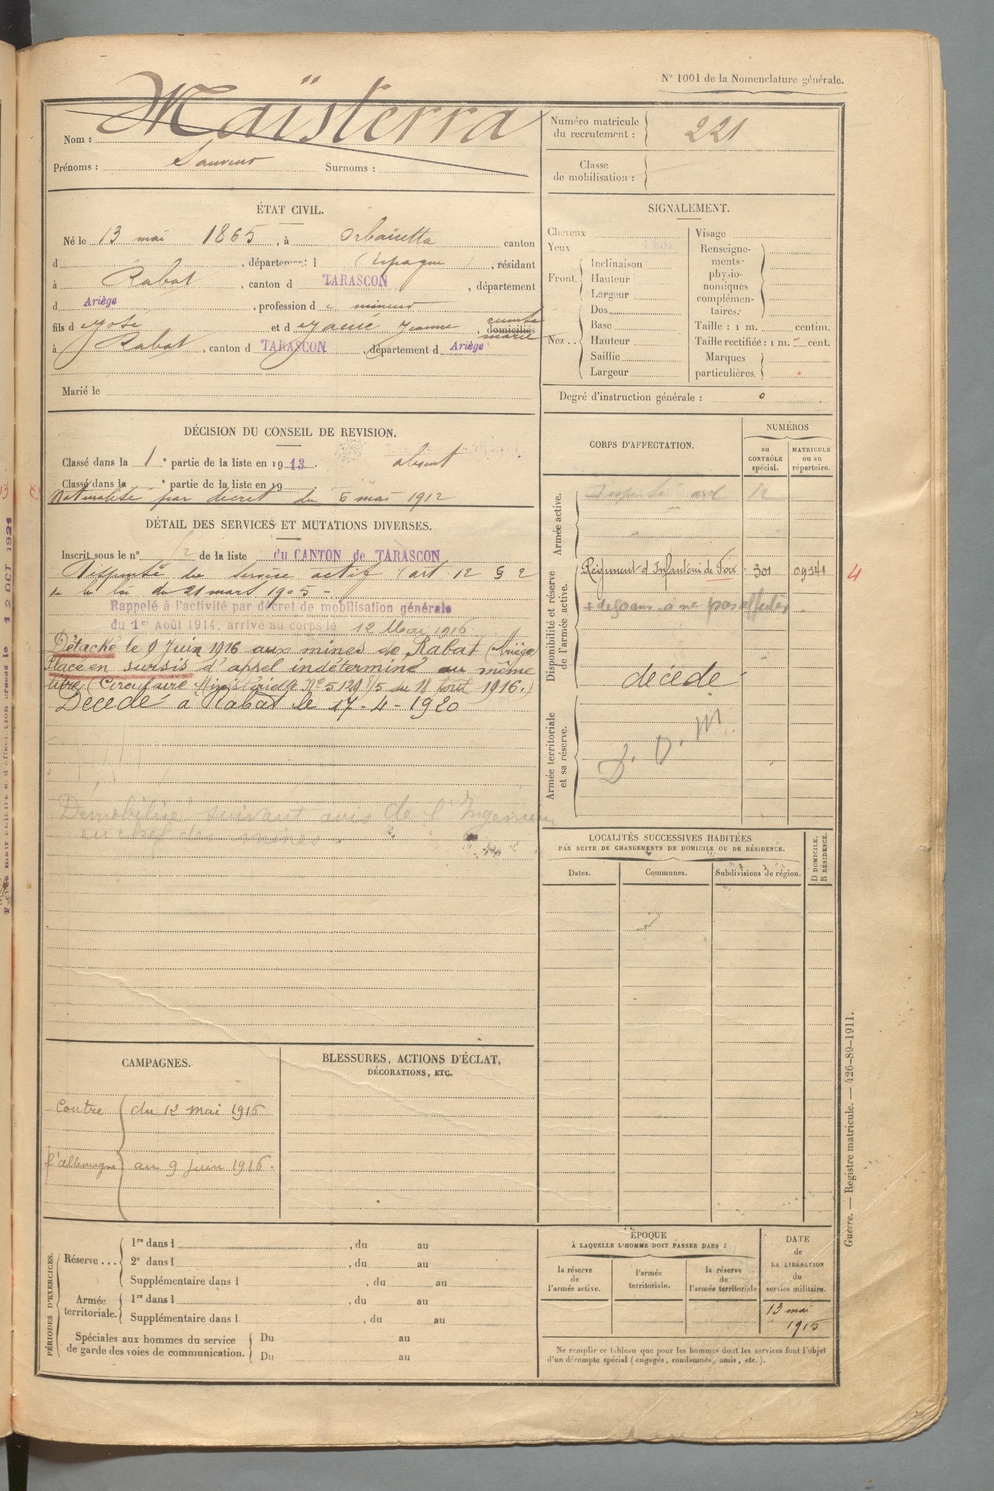 N° 1001 de la Nomenclature générale.
Nom : Maïsterra
Prénoms : Sauveur Surnoms :
Numéro matricule du recrutement : 221
Classe de mobilisation :
ÉTAT CIVIL.
Né le 13 mai 1865, à Orbaïcetta canton
d , département d Espagne, résidant
à Rabat, canton d TARASCON, département
d Ariège, profession d e mineur
fils d e José et d e Jeanne, domiciliés
à Rabat, canton d TARASCON, département d Ariège
Marié le
SIGNALEMENT.
Cheveux
Yeux
Front. Inclinaison
Hauteur
Largeur
Nez.. Dos
Base
Hauteur
Saillie
Largeur
Visage
Renseigne-
ments
physio-
nomiques
complémen-
taires.
Taille : 1 m. centim.
Taille rectifiée : 1 m. cent.
Marques
particulières.
Degré d'instruction générale : 0
DÉCISION DU CONSEIL DE REVISION.
Classé dans la 1e partie de la liste en 1913. absent
Classé dans la e partie de la liste en 19
Naturalisé par décret du 6 mai 1912
DÉTAIL DES SERVICES ET MUTATIONS DIVERSES.
Inscrit sous le n° 12 de la liste du CANTON de TARASCON
Dispensé du service actif (art 12 § 2
de la loi du 21 mars 1905 -
Rappelé à l'activité par décret de mobilisation générale
du 1er Août 1914, arrivé au corps le 12 Mai 1916
Détaché le 9 Juin 1916 aux mines de Rabat (Ariège)
Placé en sursis d'appel indéterminé au même
titre (Circulaire Ministérielle N° 5.129 8/5 du 18 Aout 1916.)
Décédé à Rabat le 17-4-1920
Démobilisé suivant avis de l'Ingénieur
en chef des mines.
CORPS D'AFFECTATION.
NUMÉROS
au CONTRÔLE spécial.
MATRICULE ou au répertoire.
Armée active.
Dispensé art 12
Disponibilité et réserve de l'armée active.
Régiment d'Infanterie de Foix 301 09541
4
à ne pas affecter
décédé
Armée territoriale et sa réserve.
D. O. M.
LOCALITÉS SUCCESSIVES HABITÉES
PAR SUITE DE CHANGEMENTS DE DOMICILE OU DE RÉSIDENCE.
Dates. Communes. Subdivisions de région.
D DOMICILE. R RÉSIDENCE.
CAMPAGNES.
Contre du 12 mai 1916
l'allemagne au 9 juin 1916.
BLESSURES, ACTIONS D'ÉCLAT,
DÉCORATIONS, ETC.
PÉRIODES D'EXERCICES.
Réserve ... 1re dans l , du au
2e dans l , du au
Supplémentaire dans l , du au
Armée territoriale. 1re dans l , du au
Supplémentaire dans l , du au
Spéciales aux hommes du service
de garde des voies de communication. Du au
Du au
ÉPOQUE
À LAQUELLE L'HOMME DOIT PASSER DANS :
la réserve de l'armée active.
l'armée territoriale.
la réserve de l'armée territoriale
DATE
de
LA LIBÉRATION
du
service militaire.
13 mai
1915
Ne remplir ce tableau que pour les hommes dont les services font l'objet
d'un décompte spécial (engagés, condamnés, omis, etc.).
Guerre. — Registre matricule. — 426-89-1911.